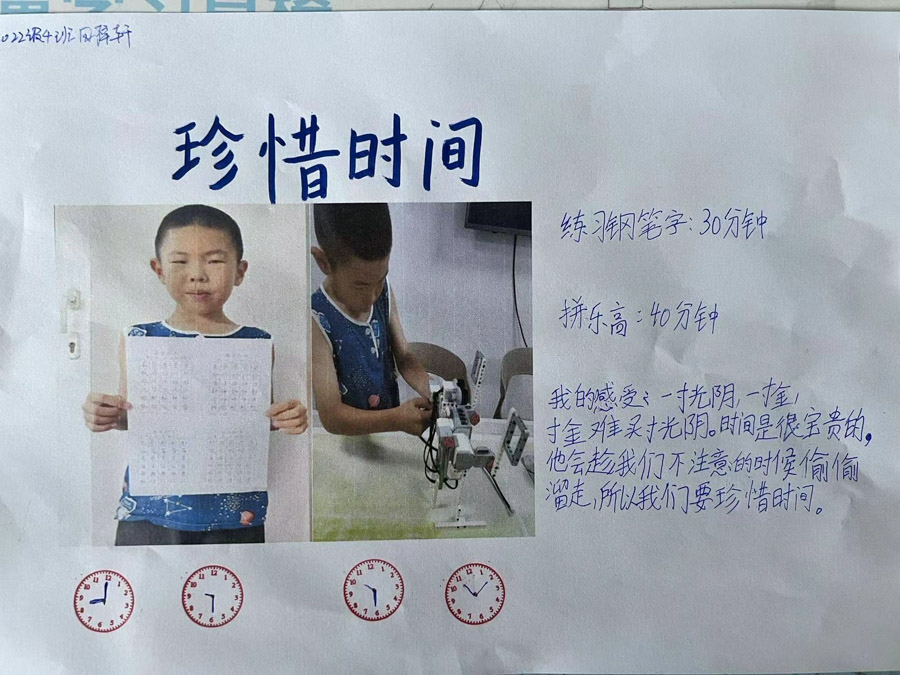 2022级4班
珍惜时间
练习钢笔字：30分钟
拼乐高：40分钟
我的感受：一寸光阴，一寸金，
寸金难买寸光阴。时间是很宝贵的，
他会趁我们不注意的时候偷偷
溜走，所以我们要珍惜时间。